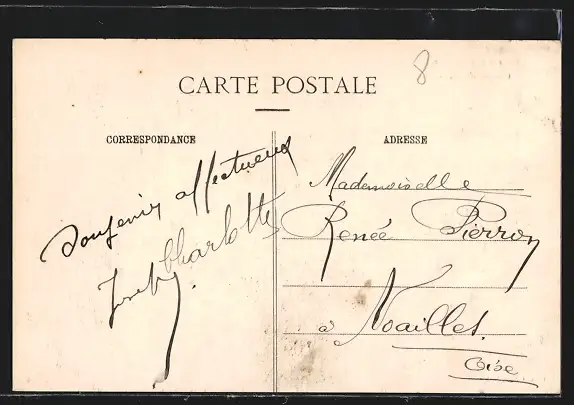 8
CARTE POSTALE
CORRESPONDANCE
Souvenir affectueux
Charlotte
ADRESSE
Mademoiselle
Renée Pierron
a Noailles.
Oise